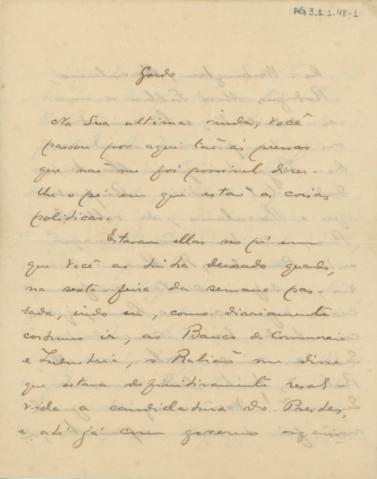 AG 3.2.1.48-1
Gordo
Na sua ultima vinda, você
passou por aqui tão ás pressas
que não me foi possivel dizer-
lhe o pé em que estão as coisas
politicas.
Estavam ellas no pé em
que você as tinha deixado quando,
na sexta-feira da semana pas-
sada, indo eu, como diariamente
costumo ir, ao Banco de Commercio
e Industria, o Rubião me disse
que estava definitivamente resol-
vida a candidatura do Prestes,
e até já com governo organi-